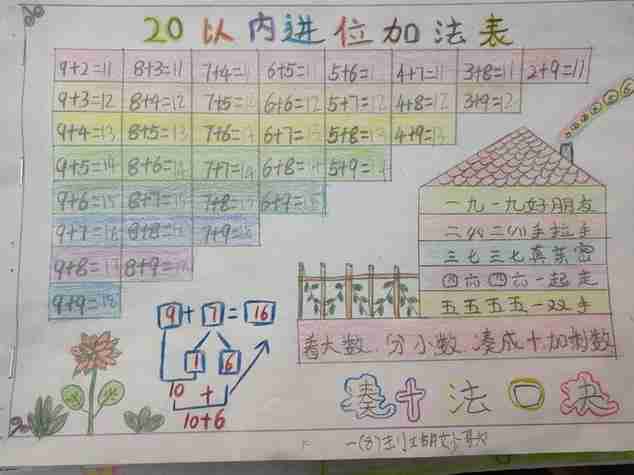 20以内进位加法表
9+2=11 8+3=11 7+4=11 6+5=11 5+6=11 4+7=11 3+8=11 2+9=11
9+3=12 8+4=12 7+5=12 6+6=12 5+7=12 4+8=12 3+9=12
9+4=13 8+5=13 7+6=13 6+7=13 5+8=13 4+9=13
9+5=14 8+6=14 7+7=14 6+8=14 5+9=14
9+6=15 8+7=15 7+8=15 6+9=15
9+7=16 8+8=16 7+9=16
9+8=17 8+9=17
9+9=18
一九一九好朋友
二八二八手拉手
三七三七真亲密
四六四六一起走
五五五五一双手
看大数,分小数,凑成十加剩数
9+7=16
1 6
10 +
10+6
凑十法口决
一(8)